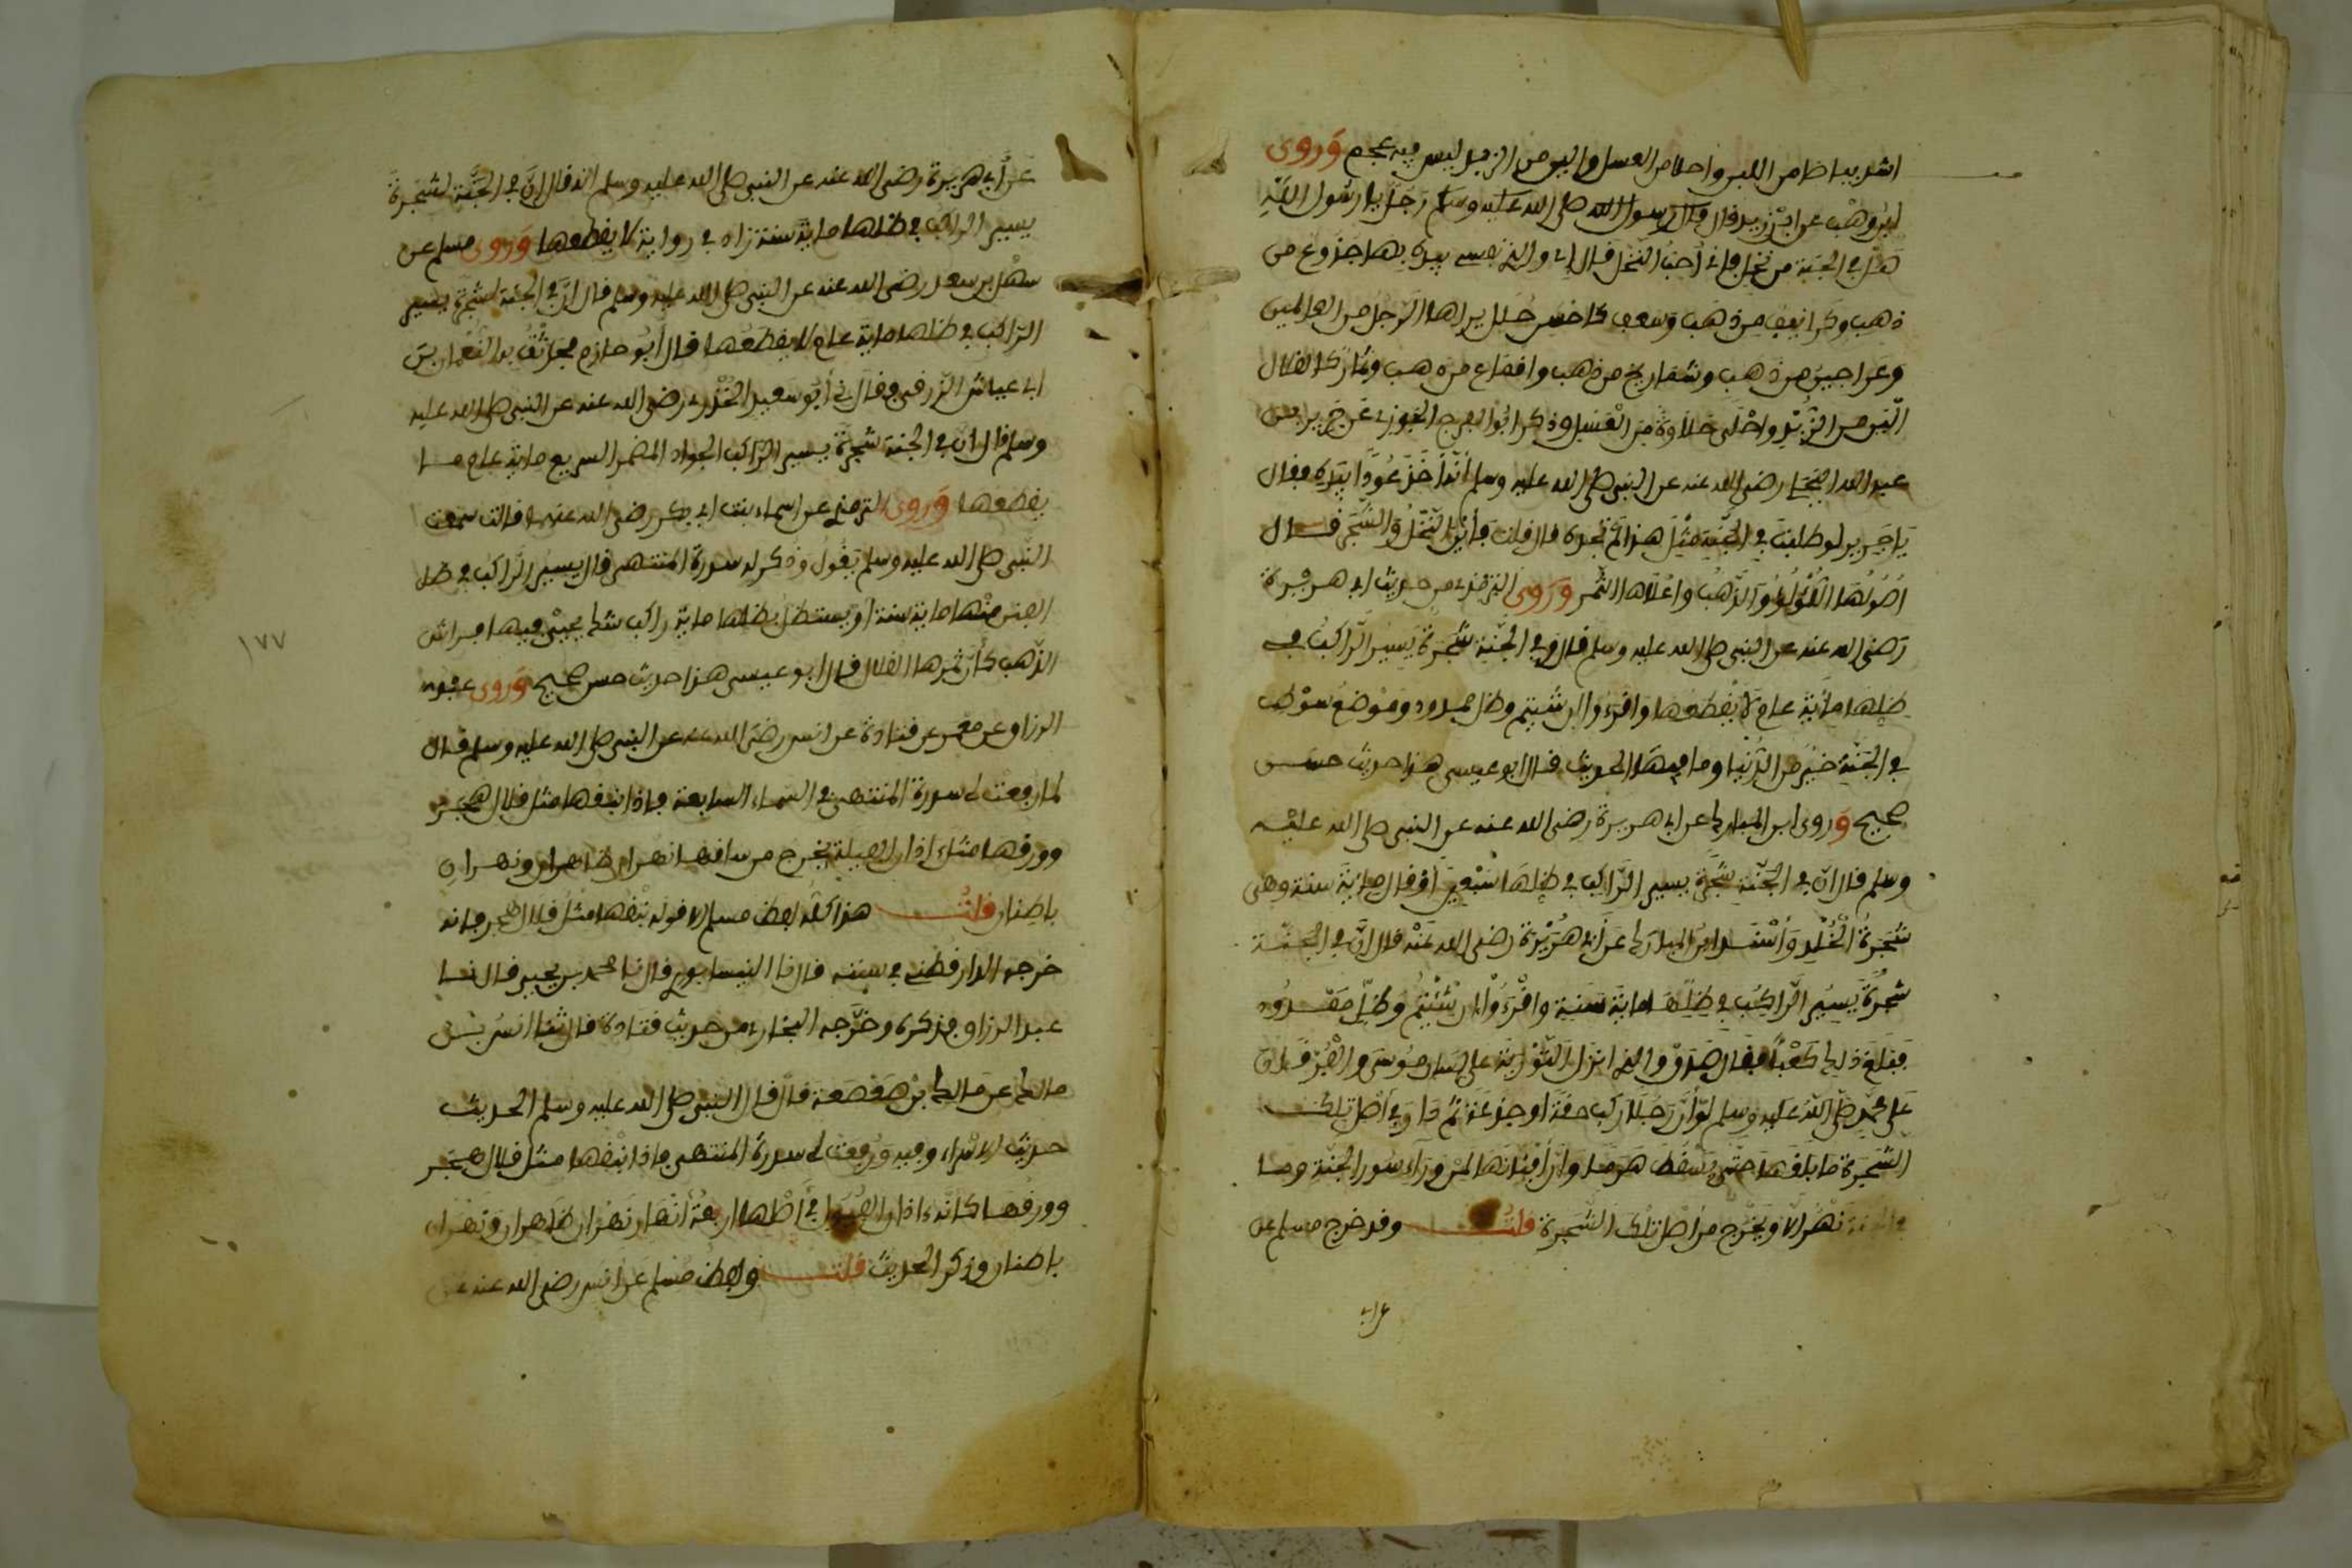 اشد بياضا من اللبن واحلا من العسل والين من الزبد ليس فيه عجم وَروى
ابن وهْب عن ابن زيد قال قال رسول الله صلى الله عليه وسلم رَجُل يا رسُول اللَّهِ
هل في الجنة من نخل فإني أحبُ النخل قال إي والذي نفسي بيده لها جذوع من
ذهب وكرانيف من ذهب وسعف كاحسن حُلل يراها الرجُل من العالمين
وعراجين من ذهب وشماريخ من ذهب واقماع من ذهب وثمارٌ كالقلال
الين من الزُّبْدِ واحْلَى حَلاوةً من الْعَسَل وذكر ابُوا الفرج الجوزي عَن جَرير بن
عبد الله البَجَلي رضي الله عنه عن النبي صلى الله عليه وسلم أنّه أخَذَ عُودًا بيَدِه فقال
يَا جَرير لو طلبْتَ في الجَنَّةِ مِثْلَ هذا لَمْ تجده قال قلت فأيْن النّخْلُ وَالشَّجَر قـال
اصُولُهَا اللُّؤْلُؤُ وَالذَّهبُ واعْلاها الثّمر وَرَوى الترمذي من حديث ابي هريْرة
رَضى الله عنه عن النبي صلى الله عليه وسلم قال في الجنّة شَجَرةٌ يَسِير الرّاكبُ في
ظلِّهَا مائة عام لاَ يقْطعُها وَاقرءوا ان شئتم وظل ممدود وموْضعُ سَوْط
في الجَنّة خيْر من الدّنيا وما فيها الحديث قال ابو عيسى هذا حديث حسن
صحيح وروى ابن المبارك عن ابي هريرة رضى الله عنه عن النبي صلى الله عليْه
وسلم قال ان في الجنّة شجَرة يسير الرّاكب في ظلّها سَبْعينَ أوْ قال مائة سنة وهى
شجَرةُ الْخُلْدِ وَأسْنَـد ابن المبارك عن أبي هُريْرة رضى الله عنه قال ان في الجنّـة
شجَرةً يَسيُر الرّاكبُ في ظلِّها مائة سَنةٍ واقْرءُوا ان شئْتم وظلّ ممْـدُود
فبلغَ ذلك كَعْبا فقال صَدَق والذي انزل التّوْرية على لسان مُوسَى والْفُرقـان
عَلَى محمّد صلّى اللهُ عليه وسلم لوْ أنّ رَجُلًا ركب حقّةً او جذعة ثمّ دار في أصْل تلك
الشّجَرة ما بلغَها حتّى يسْقط هَرَمـا وان أفنانها لمن ورَاء سُور الجنّة وما
في الجنة نهْر الا ويخْرج من أصل تلك الشّجرة قلت وقد خرج مسلم عن
عن ابي
عن أبي هريرة رضي الله عنه عن النبي صلى الله عليه وسلم انه قال انّ في الجَنّة لشجرةً
يسير الراكب في ظلها مائة سنة زاد في رواية لا يقطعها وَروى مسلم عن
سهْل بن سعد رضى الله عنه عن النبي صلى الله عليه وسلم قال انّ في الجنّة لشجرةً يسير
الرّاكب في ظلها مائة عام لا يقطعُها قال أبُو حازم فحدّثْتُ به النّعْمان بن
ابي عياش الزرقي فقال حدثني أبُو سَعيد الخُدْري رضي الله عنه عن النبي صلى الله عليه
وسلم قال ان في الجنة شجرةً يسير الرّاكب الجواد المضمر السريع مائة عام مـا
يقطعها وَروى الترمذي عن اسماء بنت ابي بكر رضى الله عنهما قالت سمعت
النّبى صلى الله عليه وسلم يَقُول وذكر له سدرة المنتهى قال يسيرُ الرّاكبُ في ظل
الفنن منْها مائة سنة أو يستظلّ بظلها مائة راكب شك يحيْى فيها فراش
الذّهب كأنّ ثمرها القلال قال ابو عيسى هذا حديث حسن صحيح وَروى عبد
الرزاق عن معمر عن قتادة عن انس رضى الله عنه عن النبي صلى الله عليه وسلم قـال
لما رفعت لي سدرة المنتهى في السماء السابعة فإذا نبقها مثل قلال هجر
وورقها مثل اذان الفيلة يخرج من ساقها نهران ظاهران ونهـران
باطنان قلت هذا كله لفظ مسلم الا قوله نبْقها مثل قلال هجر فانه
خرجه الدارقطني في سننه قال نا النيسابوري قال نا محمد بن يحيى قال نـا
عبد الرزاق فذكره وخرّجه البخاري من حديث قتادة قال ثنا انسُ بْن
مالك عن مالك بن صَعْصَعة قال قال النبي صلى الله عليه وسلم الحديث
حديث الاسراء وفيه ورُفعت لي سدرة المنتهى فإذا نبْقها مثل قلال هجَـر
وورقُهـا كأنّه اذان الفُيُول في أصْلها اربعةُ أنْهار نهران ظَاهران وَنهْران
باطنان وذكر الحديث قلت ولفظ مُسلم عن انس رضى الله عنه عن
١٧٧